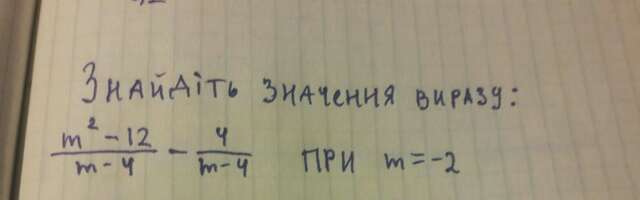 Знайдіть значення виразу:
\frac{m^2-12}{m-4} - \frac{4}{m-4} при m=-2